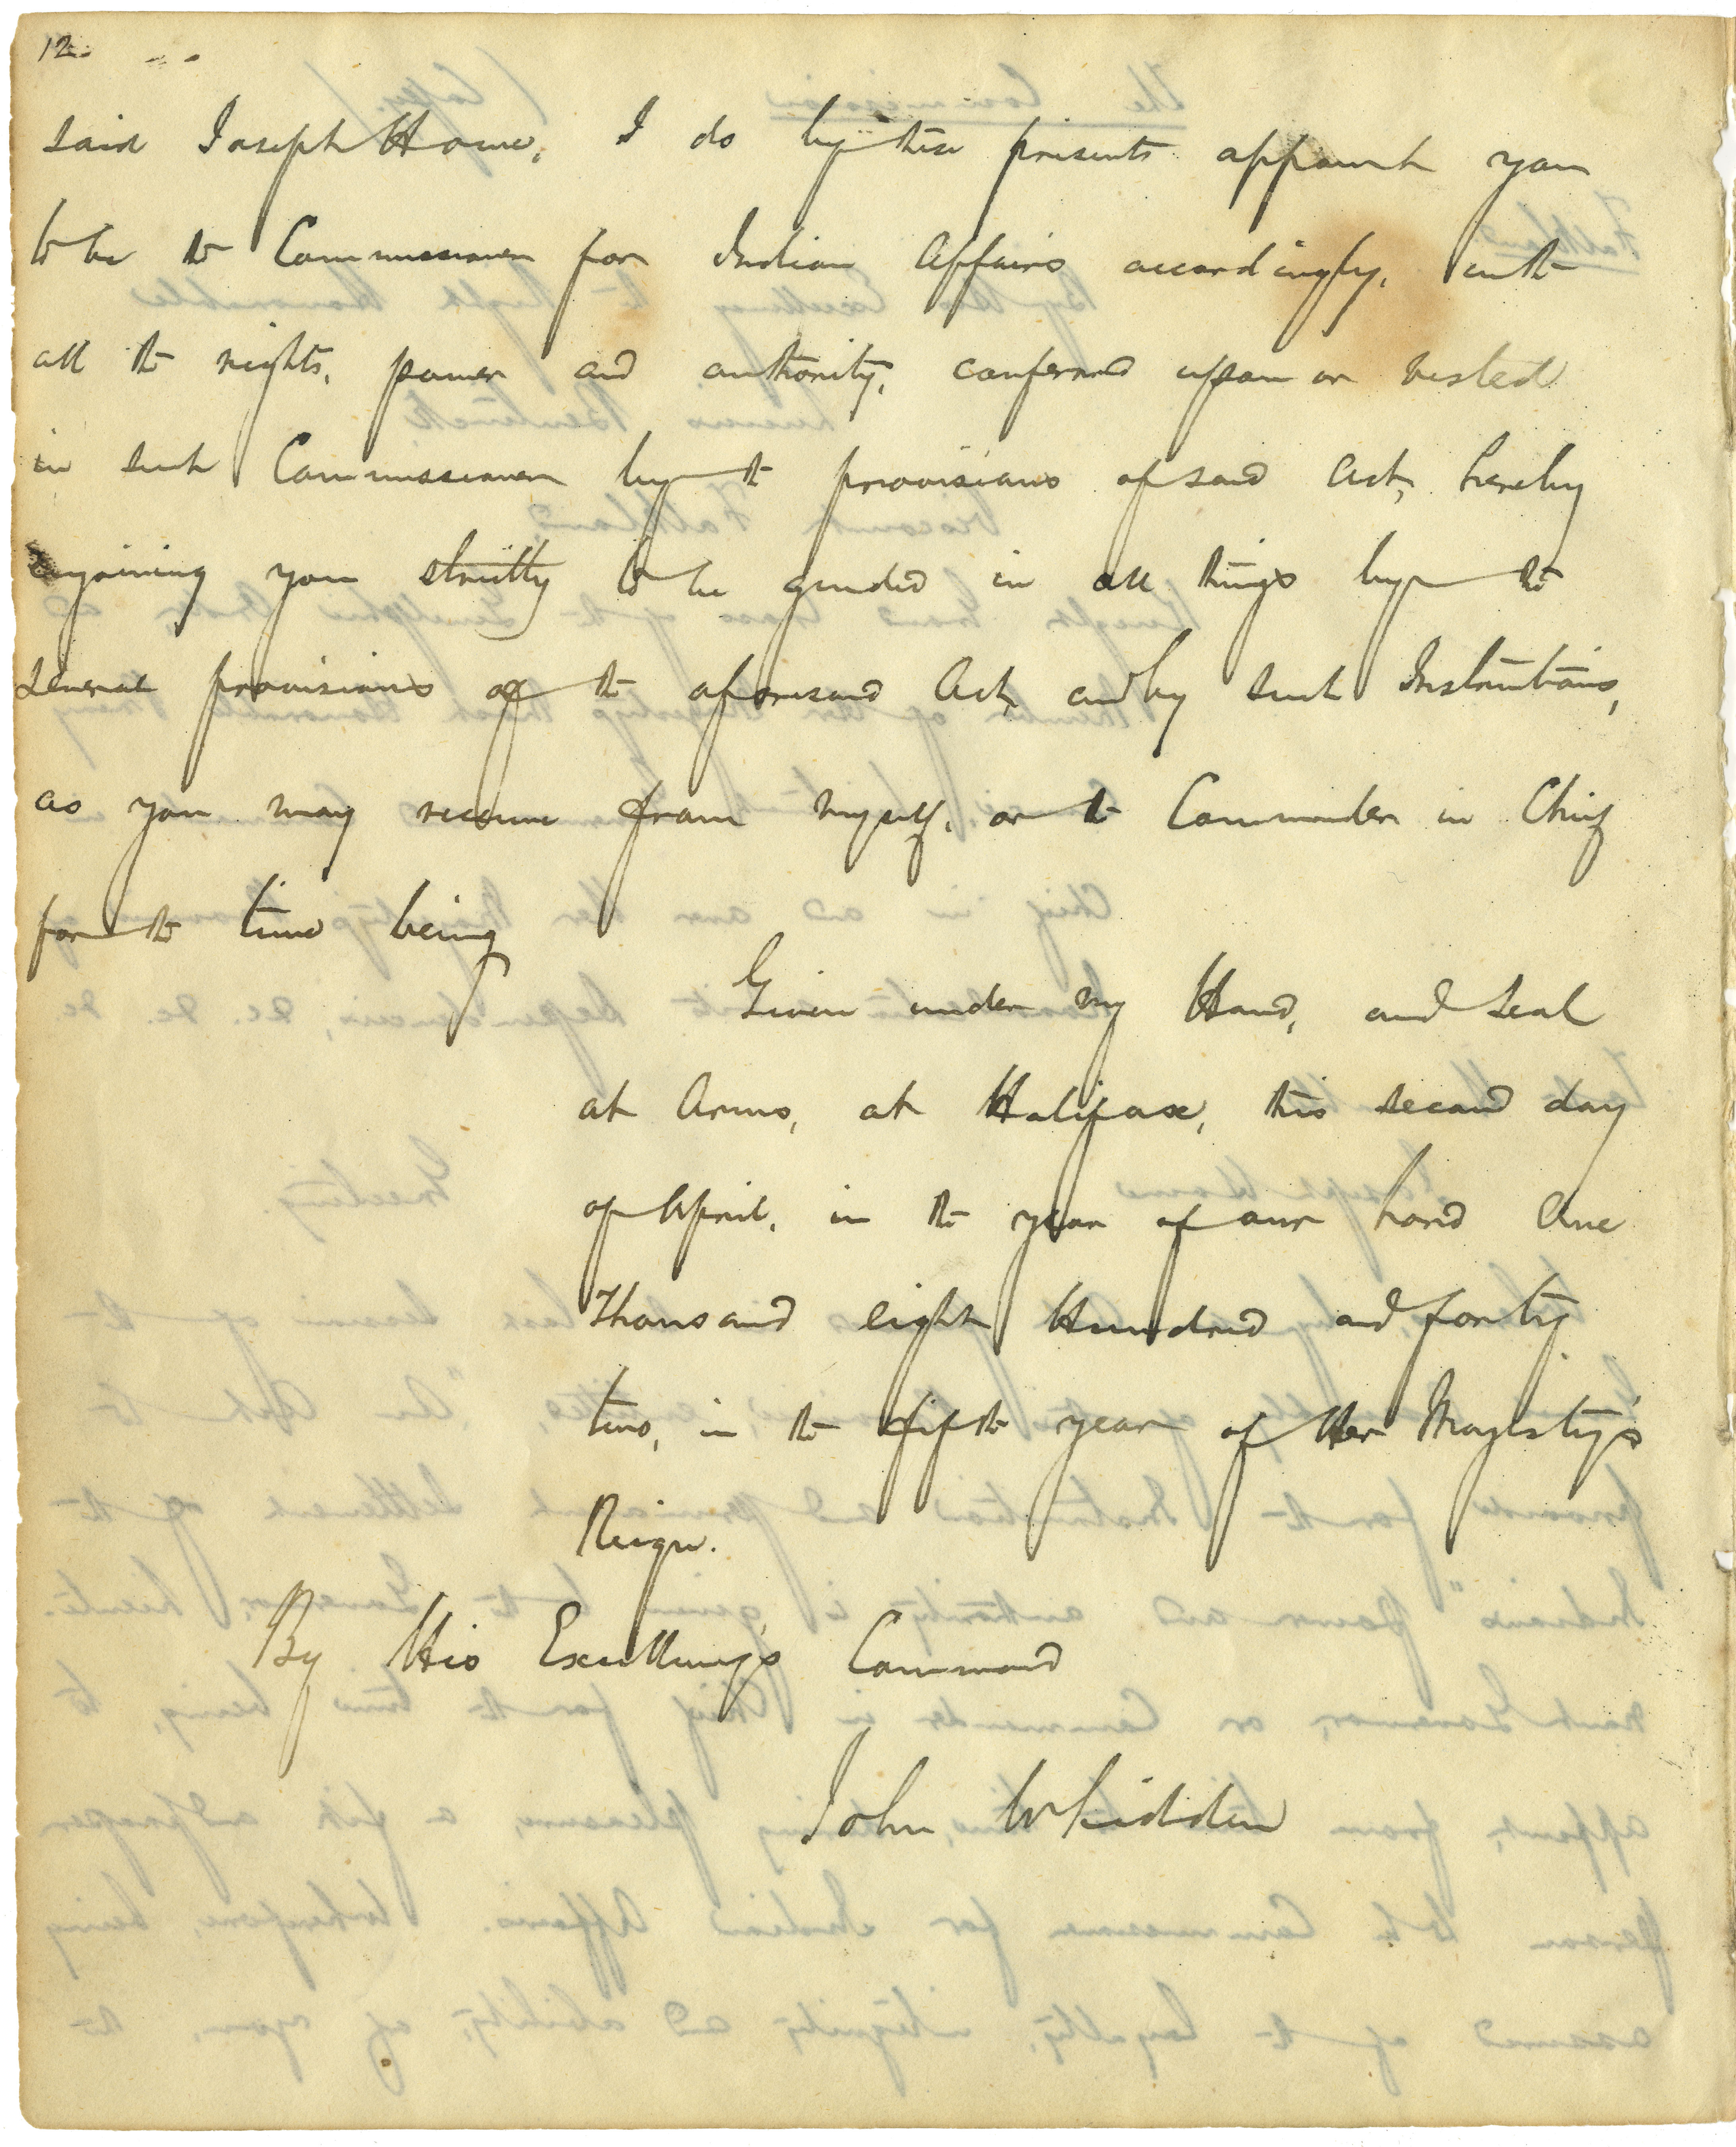 12
said Joseph Howe, I do by these presents appoint you
to be the Commissioner for Indian Affairs accordingly, with
all the rights, power and authority, conferred upon or vested
in such Commissioner by the provisions of said Act, hereby
enjoining you strictly to be guided in all things by the
several provisions of the aforesaid Act, and by such Instructions,
as you may receive from myself, or the Commander in Chief
for the time being
Given under my Hand, and Seal
at Arms, at Halifax, this second day
of April, in the year of our Lord One
Thousand eight Hundred and forty
two, in the fifth year of Her Majesty's
Reign.
By His Excellency's Command
John Whidden